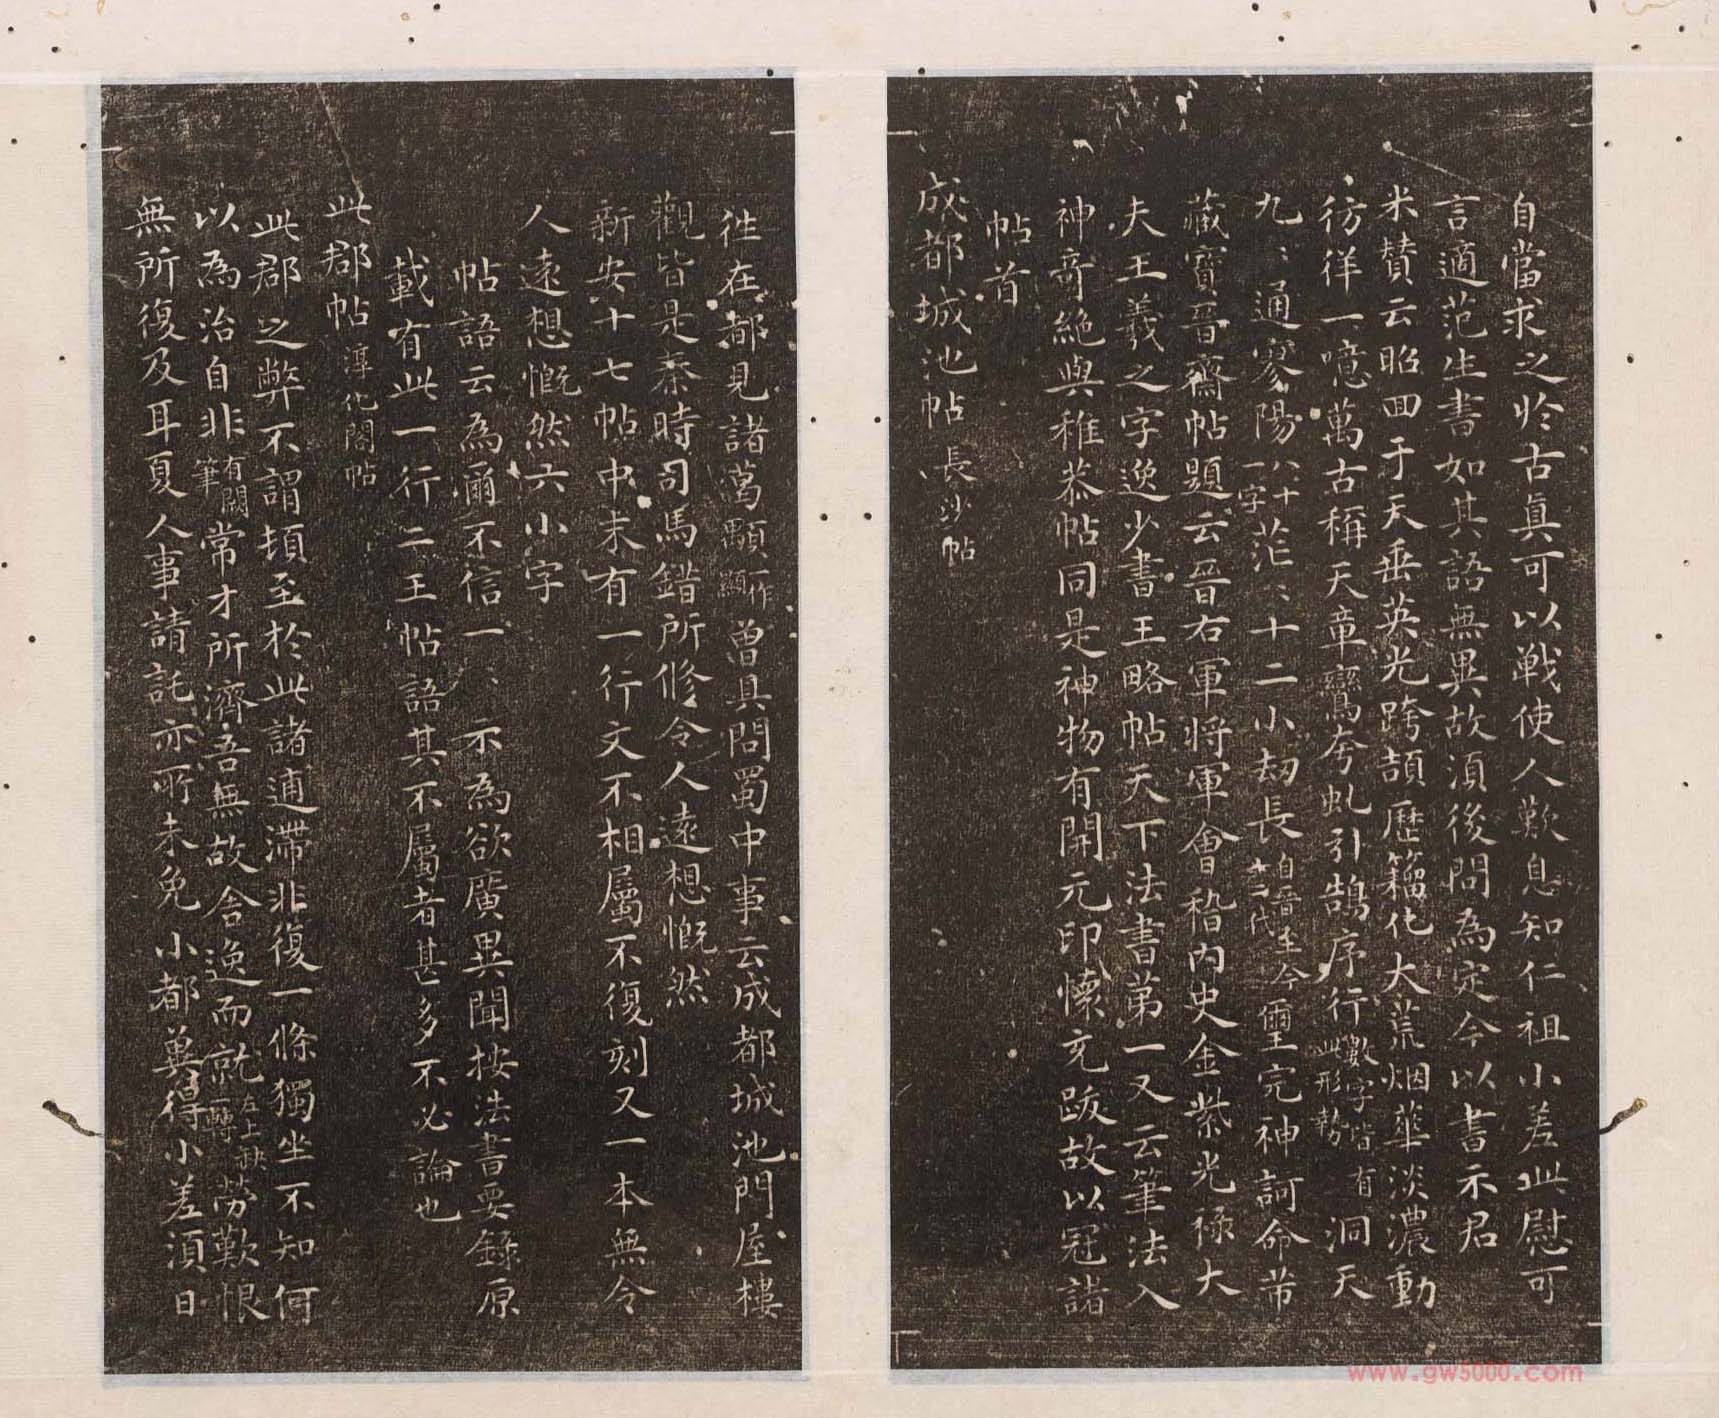 自當求之於古真可以戰使人歎息知仁祖小差此慰可
言適范生書如其語無異故須後問為定今以書示君
米贊云昭回于天垂英光跨頡歷籀化大荒烟華淡濃動
彷徉一噫萬古稱天章鸞夸虬引鵠序行數字皆有此形勢洞天
九〻通寥陽八十一字茫〻十二小劫長自晉至今十二代璽完神訶命芾
藏寶晉齋帖題云晉右軍將軍會稽內史金紫光祿大
夫王羲之字逸少書王略帖天下法書第一又云筆法入
神奇絕與稚恭帖同是神物有開元印懷充跋故以冠諸
帖首
成都城池帖長沙帖
往在都見諸葛顒一作顯曾具問蜀中事云成都城池門屋樓
觀皆是秦時司馬錯所修令人遠想慨然
新安十七帖中末有一行文不相屬不復刻又一本無令
人遠想慨然六小字
帖語云為爾不信一〻示為欲廣異聞按法書要錄原
載有此一行二王帖語其不屬者甚多不必論也
此郡帖淳化閣帖
此郡之弊不謂頓至於此諸逋滯非復一條獨坐不知何
以為治自非有闕筆常才所濟吾無故舍逸而就左上缺一轉勞歎恨
無所復及耳夏人事請託亦所未免小都冀得小差須日
www.gw5000.com